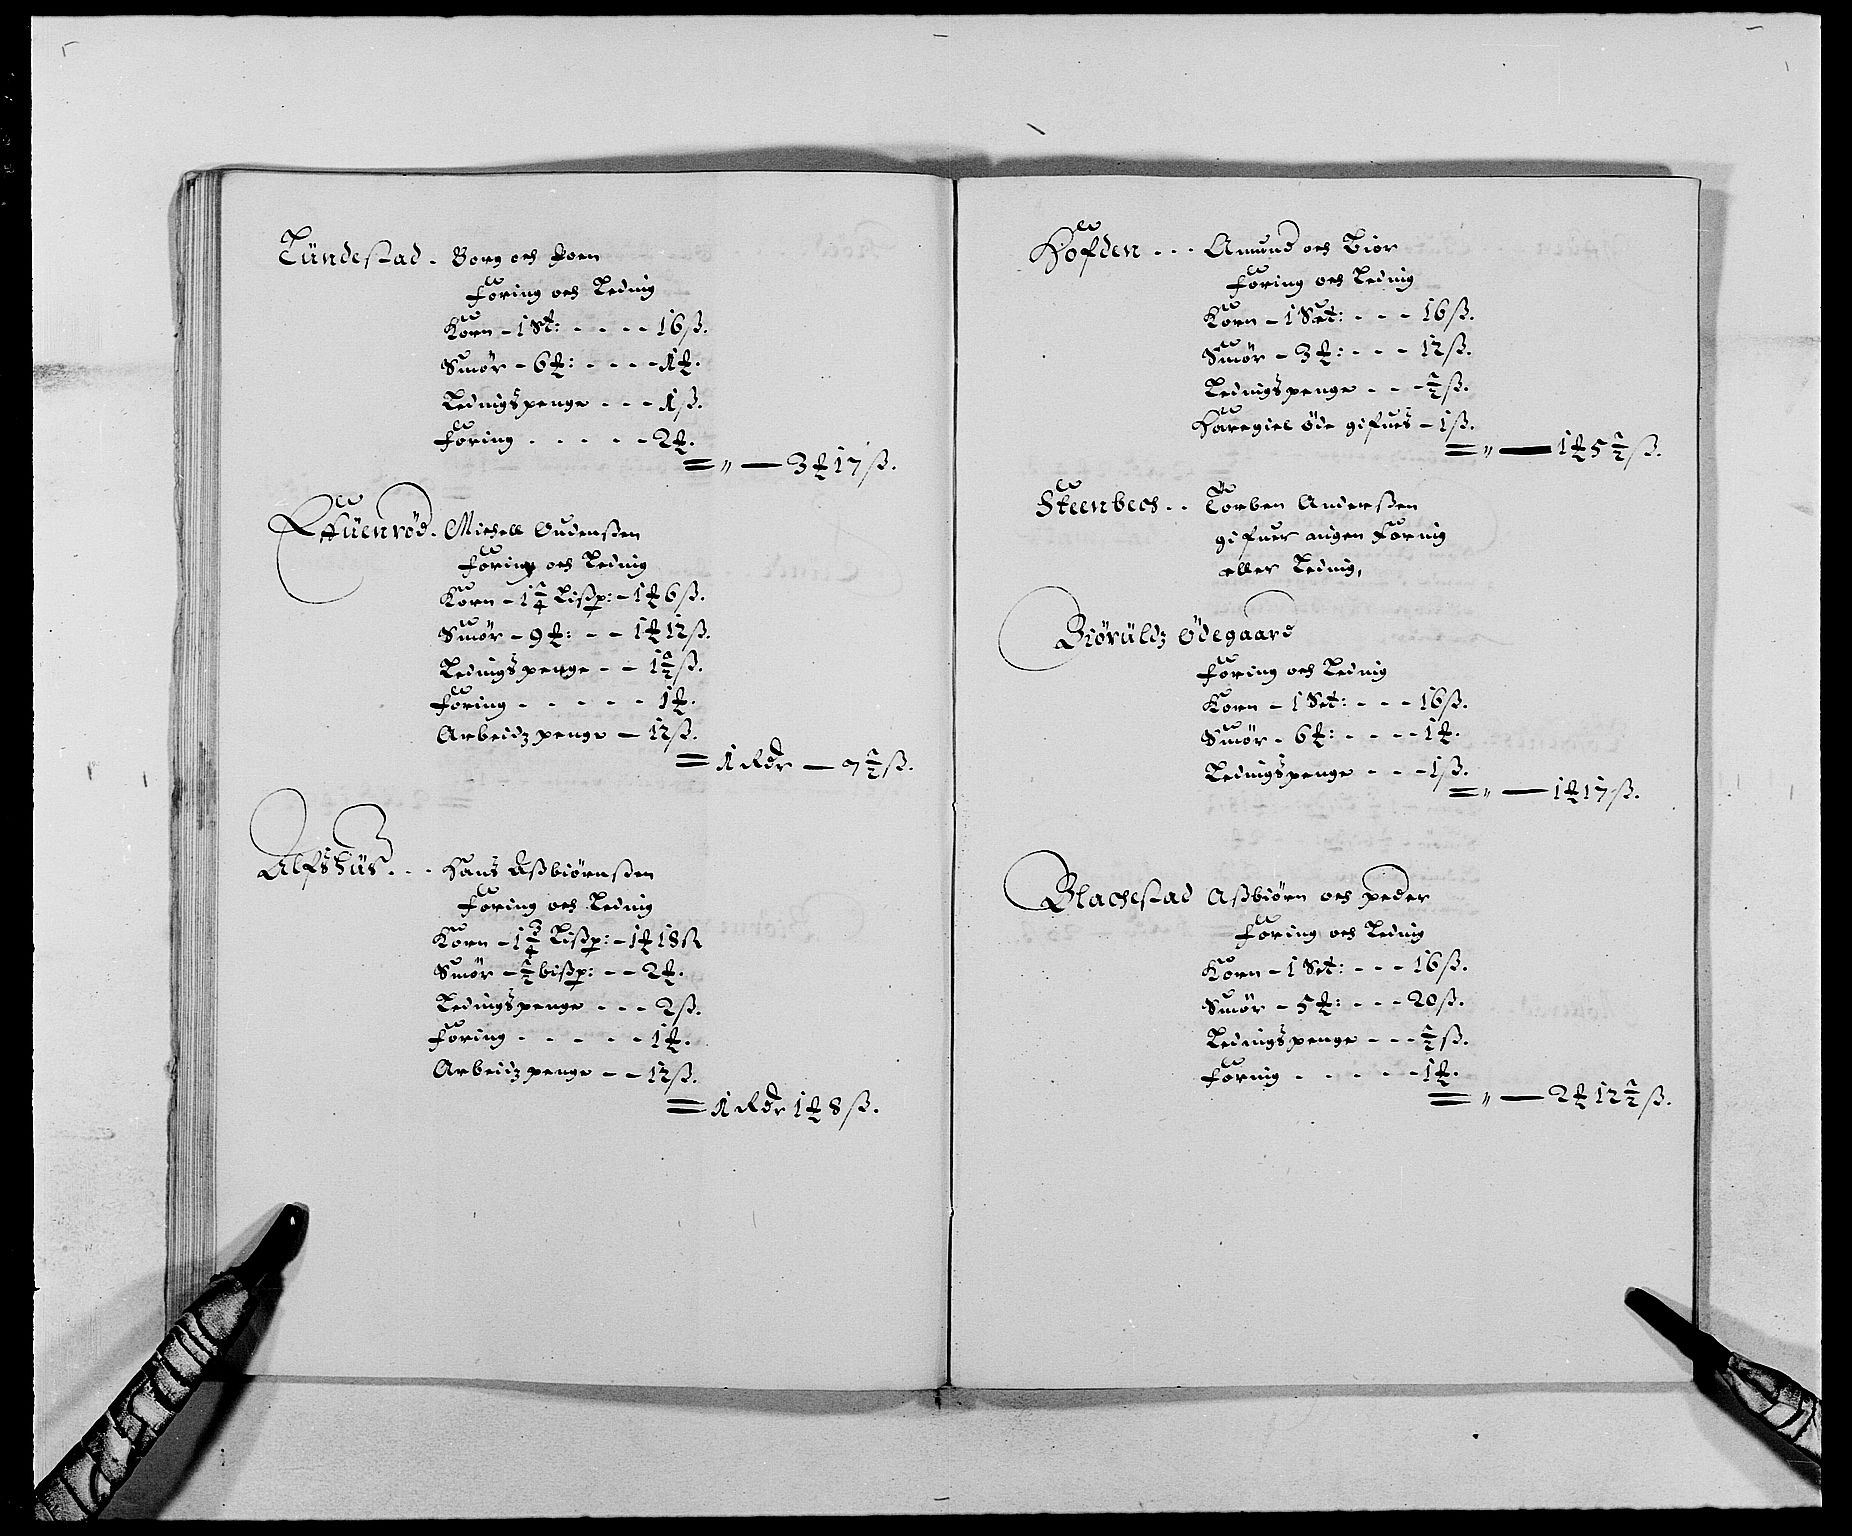 Tündestad - Borg och Joen
Foring och Leding
Korn - 1 Set: - - - - 16 ß.
Smör - 6 ℔: - - - - 1 ℔.
Ledingspenge - - - 1 ß.
Foring - - - - - 2 ℔.
= " — 3 ℔ 17 ß.
Effüenröd. Michell Oudenßen
Foring och Leding
Korn - 1 1/4 Lißp: - 1 ℔ 6 ß.
Smör - 9 ℔: - - 1 ℔ 12 ß.
Ledingspenge - - 1 1/2 ß.
Foring - - - - - 1 ℔.
Arbeidz penge - 12 ß.
= 1 Rdr — 7 1/2 ß.
Alfshüs. - - Hans Aßbiörnßen
Foring och Leding
Korn - 1 3/4 Lißp: - 1 ℔ 18 ß
Smör - 1/2 bißp: - - 2 ℔.
Ledingspenge - - - 2 ß.
Foring - - - - - 1 ℔.
Arbeidz penge - - 12 ß.
= 1 Rdr 1 ℔ 8 ß.
Hofden - - - Amund och Bior
Foring och Leding
Korn - 1 Set: - - - 16 ß.
Smör - 3 ℔: - - - 12 ß.
Ledingspenge - - - 1/2 ß.
Haregiel øde gifues - 1 ß.
= " — 1 ℔ 5 1/2 ß.
Steenbech - - Torben Anderßen
gifuer ingen Foring
eller Leding,
Biörüldz Ödegaard
Foring och Leding
Korn - 1 Set: - - - 16 ß.
Smör - 6 ℔: - - - - 1 ℔.
Ledingspenge - - - 1 ß.
= " — 1 ℔ 17 ß.
Blachestad Aßbiörn och peder
Foring och Leding
Korn - 1 Set: - - - 16 ß.
Smör - 5 ℔: - - - 20 ß.
Ledingspenge - - - 1/2 ß.
Foring - - - - - 1 ℔.
= " — 2 ℔ 12 1/2 ß.